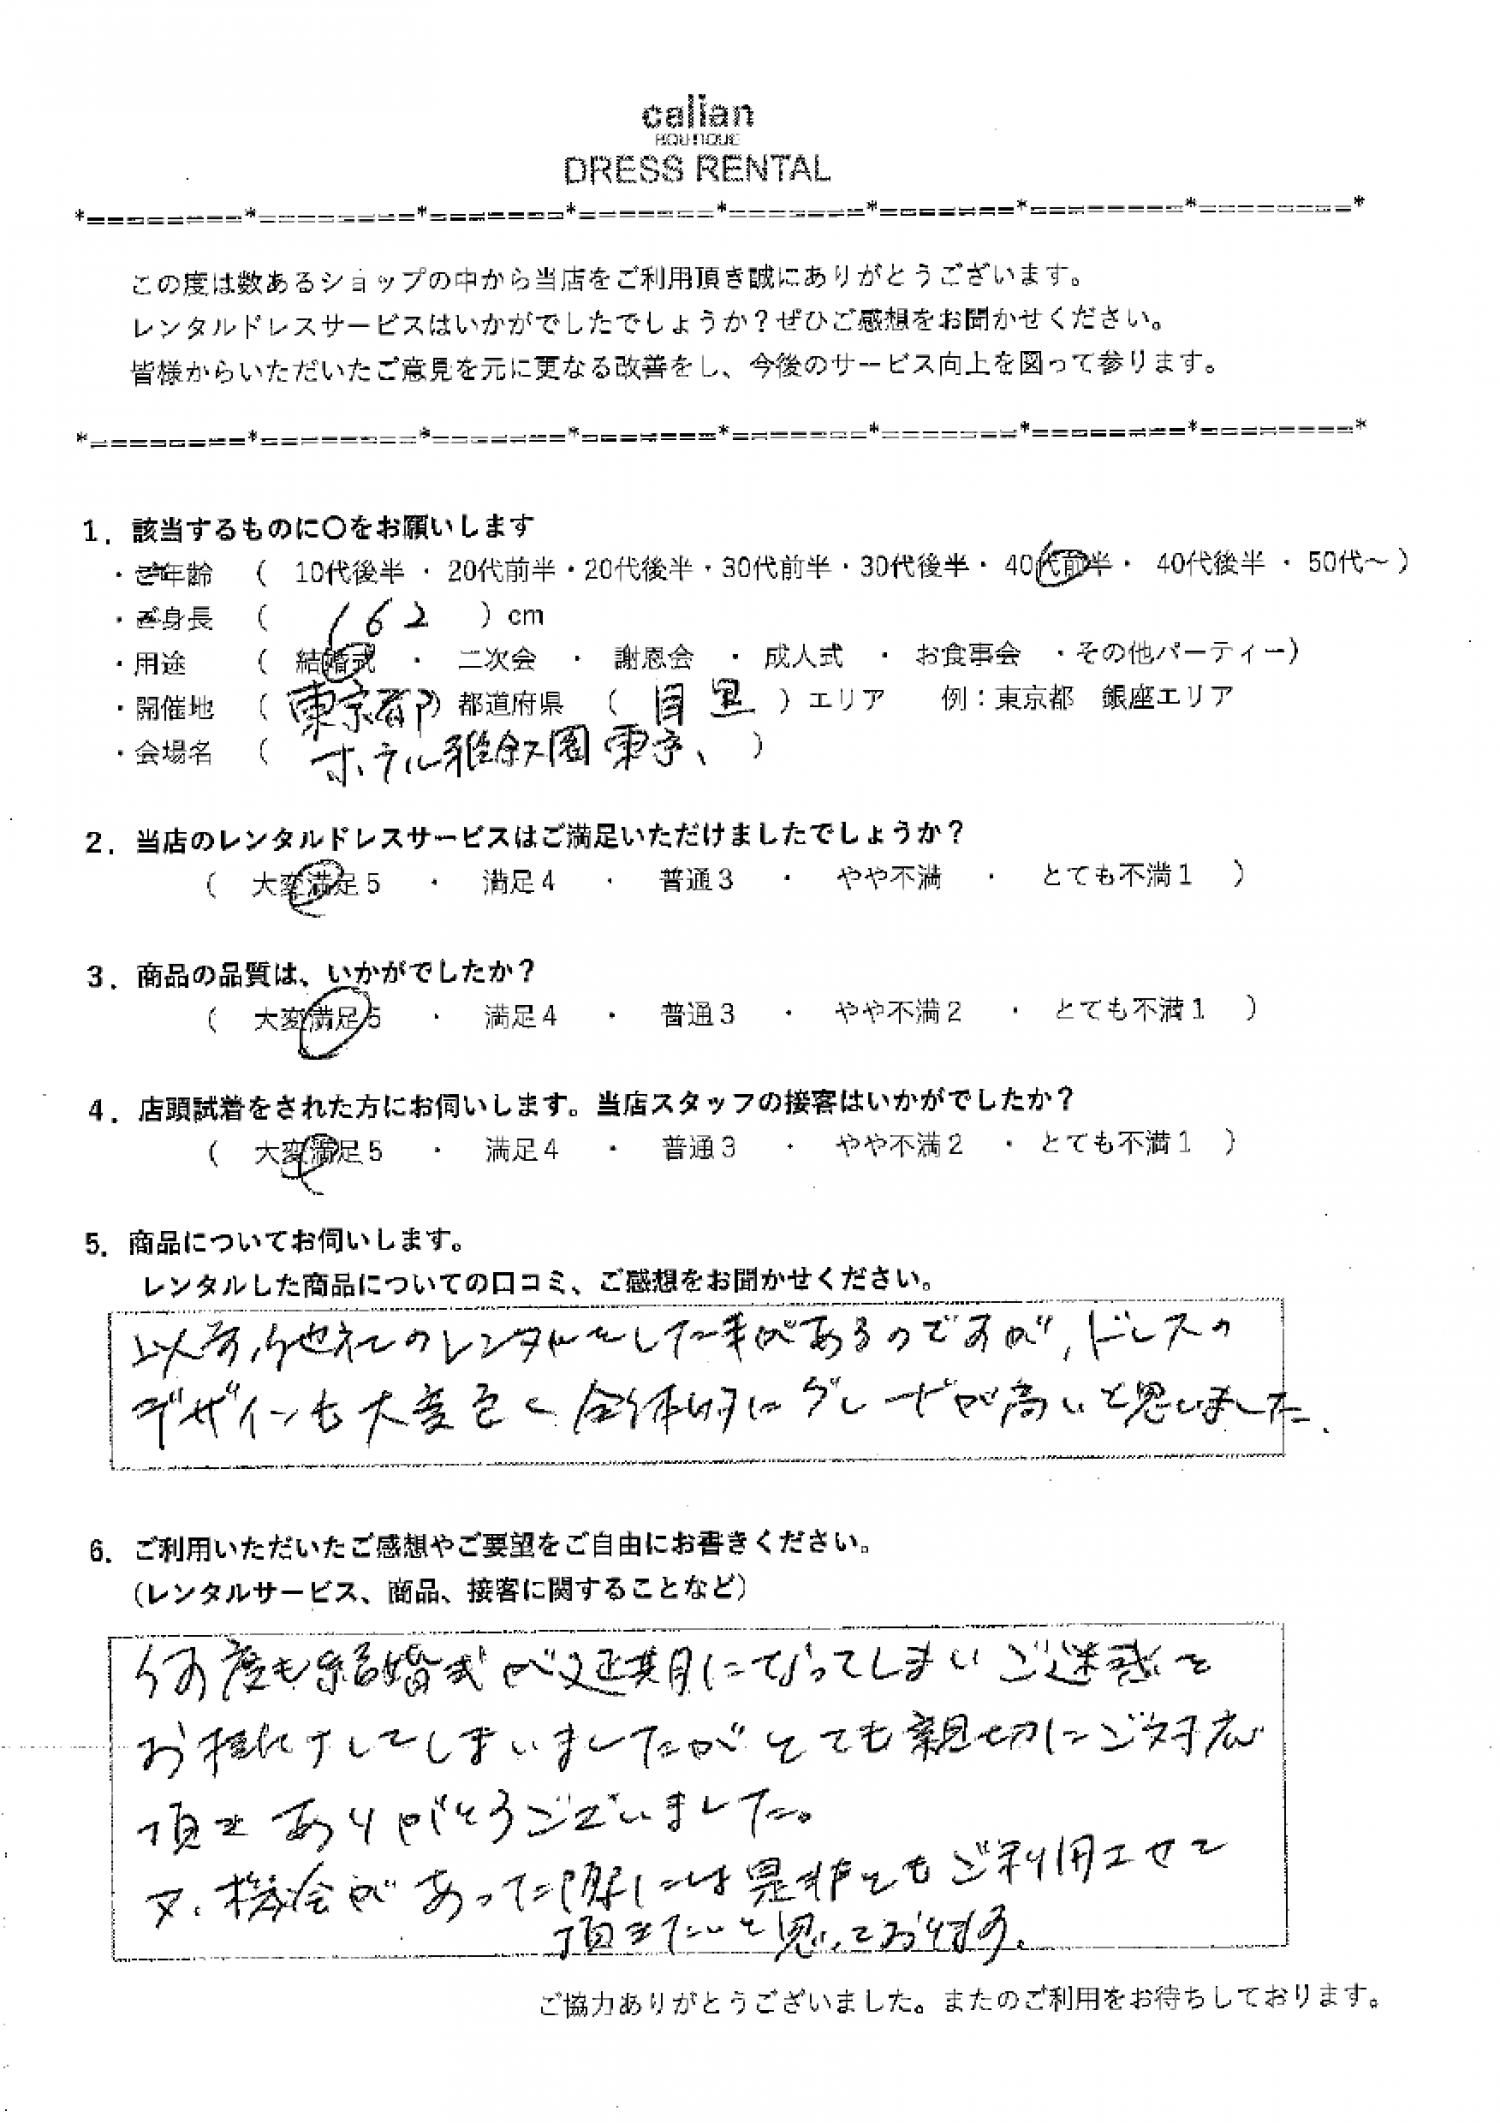 calian
BOUTIQUE
DRESS RENTAL
*========*========*=======*=======*=======*=======*========*========*
この度は数あるショップの中から当店をご利用頂き誠にありがとうございます。
レンタルドレスサービスはいかがでしたでしょうか？ぜひご感想をお聞かせください。
皆様からいただいたご意見を元に更なる改善をし、今後のサービス向上を図って参ります。
*========*========*=======*=======*=======*=======*========*========*
1．該当するものに〇をお願いします
・ご年齢 （ 10代後半 ・ 20代前半・20代後半・30代前半・30代後半・ 40代前半・ 40代後半 ・ 50代～）
・ご身長 （ 162 ）cm
・用途 （ 結婚式 ・ 二次会 ・ 謝恩会 ・ 成人式 ・ お食事会 ・その他パーティー）
・開催地 （ 東京都 ）都道府県 （ 目黒 ）エリア 例：東京都 銀座エリア
・会場名 （ ホテル雅叙園東京、 ）
2．当店のレンタルドレスサービスはご満足いただけましたでしょうか？
（ 大変満足５ ・ 満足４ ・ 普通３ ・ やや不満 ・ とても不満１ ）
3．商品の品質は、いかがでしたか？
（ 大変満足５ ・ 満足４ ・ 普通３ ・ やや不満２ ・ とても不満１ ）
4．店頭試着をされた方にお伺いします。当店スタッフの接客はいかがでしたか？
（ 大変満足５ ・ 満足４ ・ 普通３ ・ やや不満２ ・ とても不満１ ）
5．商品についてお伺いします。
レンタルした商品についての口コミ、ご感想をお聞かせください。
以前、他社のレンタルをした事があるのですが、ドレスの
デザインも大変良く全体的にグレードが高いと思いました。
6．ご利用いただいたご感想やご要望をご自由にお書きください。
（レンタルサービス、商品、接客に関することなど）
何度も結婚式が延期になってしまいご迷惑を
お掛けしてしまいましたがとても親切にご対応
頂きありがとうございました。
又、機会があった際には是非ともご利用させて
頂きたいと思っております。
ご協力ありがとうございました。またのご利用をお待ちしております。